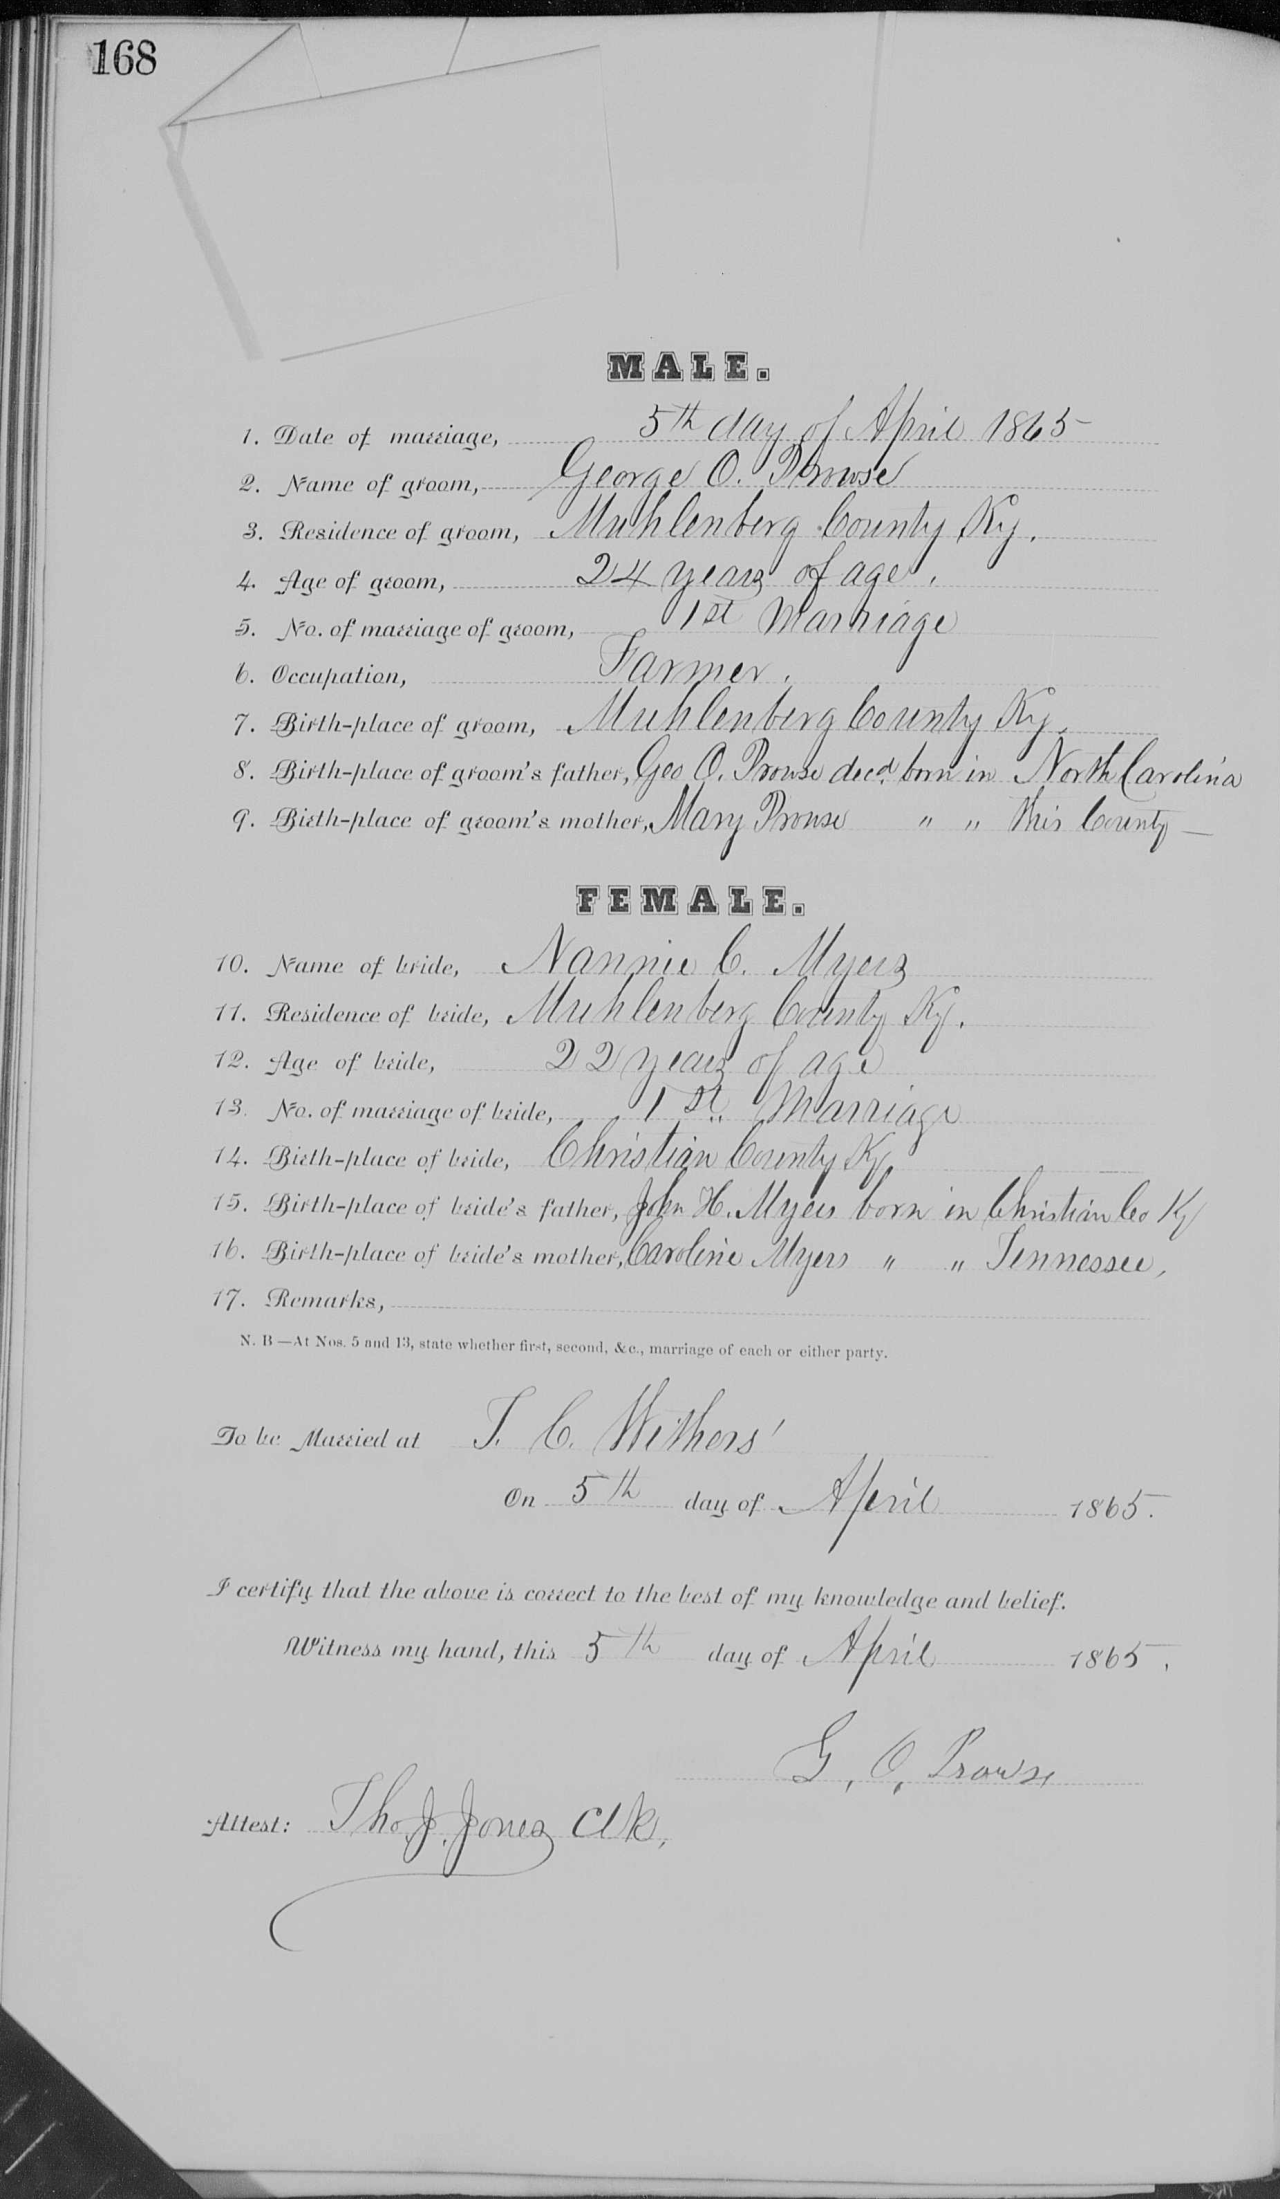 168
MALE.
1. Date of marriage, 5th day of April 1865
2. Name of groom, George O. Prowse
3. Residence of groom, Muhlenberg County Ky.
4. Age of groom, 24 years of age.
5. No. of marriage of groom, 1st Marriage
6. Occupation, Farmer.
7. Birth-place of groom, Muhlenberg County Ky.
8. Birth-place of groom's father, Geo O. Prowse decd. born in North Carolina
9. Birth-place of groom's mother, Mary Prowse " " this County —
FEMALE.
10. Name of bride, Nannie C. Myers
11. Residence of bride, Muhlenberg County Ky.
12. Age of bride, 22 years of age
13. No. of marriage of bride, 1st Marriage
14. Birth-place of bride, Christian County Ky.
15. Birth-place of bride's father, John H. Myers born in Christian Co Ky
16. Birth-place of bride's mother, Caroline Myers " " Tennessee,
17. Remarks,
N. B—At Nos. 5 and 13, state whether first, second, &c., marriage of each or either party.
To be Married at T. C. Withers'
On 5th day of April 1865.
I certify that the above is correct to the best of my knowledge and belief.
Witness my hand, this 5th day of April 1865.
G. O. Prowse
Attest: Tho. J. Jones Clk.